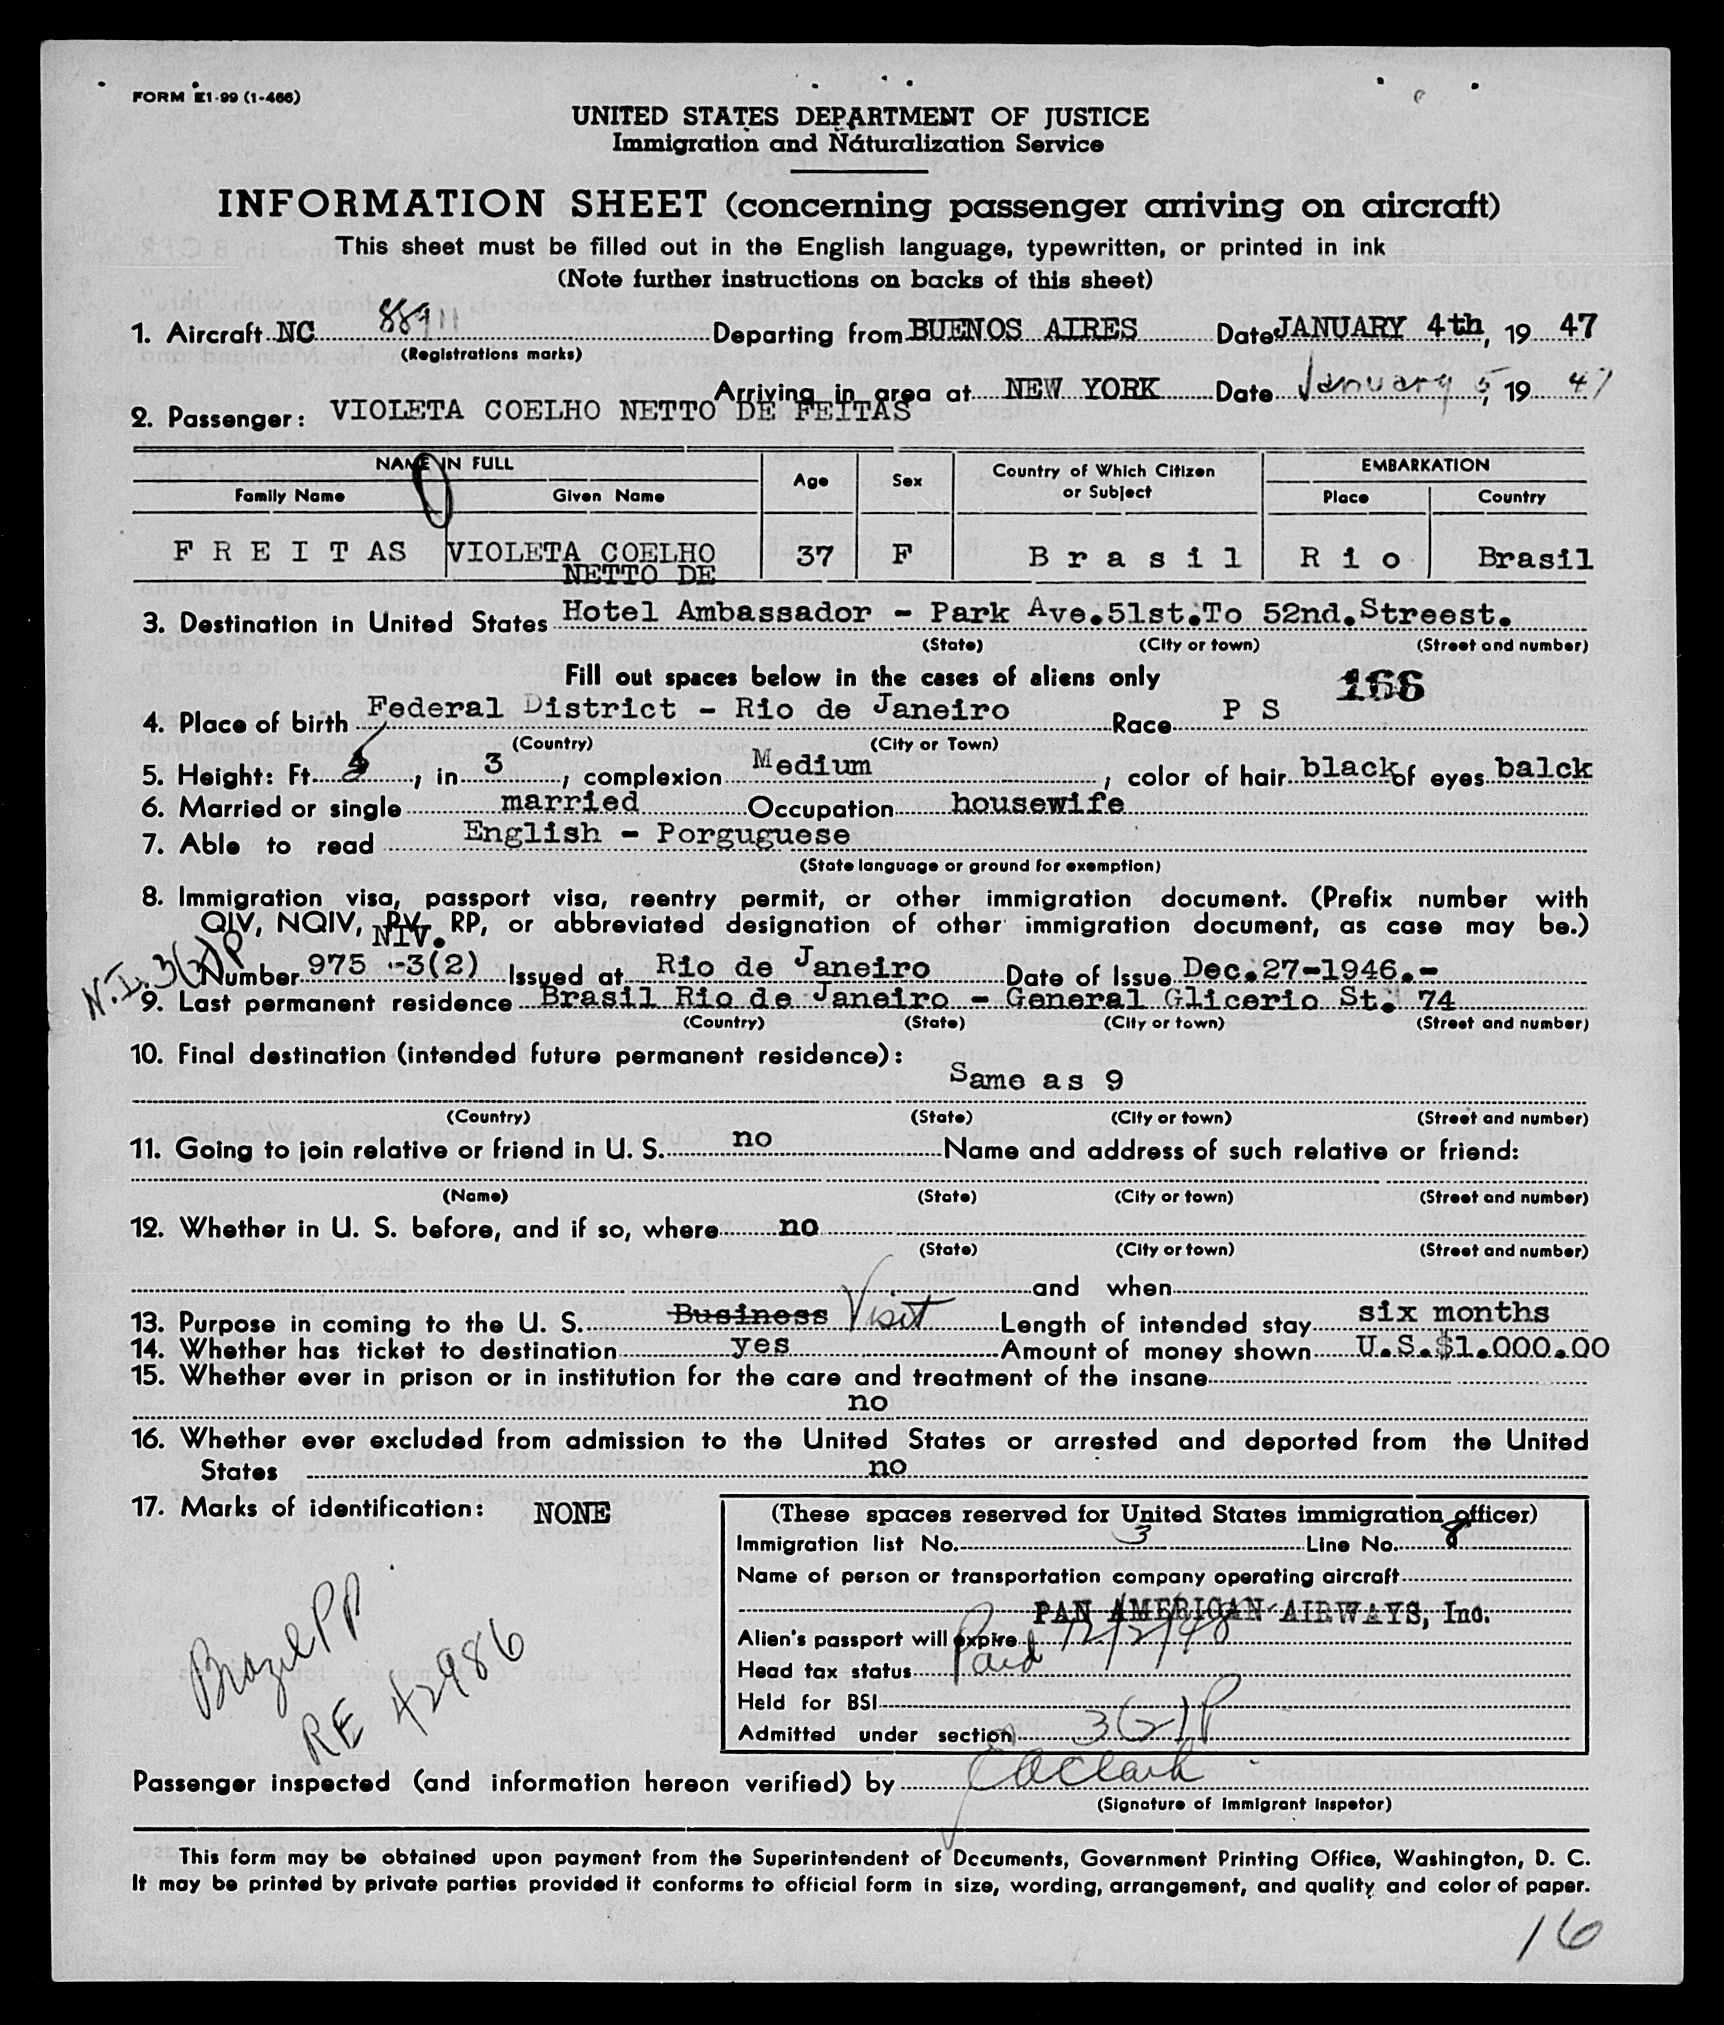 FORM E1-99 (1-466)
UNITED STATES DEPARTMENT OF JUSTICE
Immigration and Naturalization Service
INFORMATION SHEET (concerning passenger arriving on aircraft)
This sheet must be filled out in the English language, typewritten, or printed in ink
(Note further instructions on backs of this sheet)
1. Aircraft NC 88911 Departing from BUENOS AIRES Date JANUARY 4th, 19 47
(Registrations marks)
Arriving in area at NEW YORK Date January 5, 19 47
2. Passenger: VIOLETA COELHO NETTO DE FEITAS
NAME IN FULL Age Sex Country of Which Citizen or Subject EMBARKATION
Family Name Given Name Place Country
F R E I T AS VIOLETA COELHO 37 F B r a s i l R i o Brasil
NETTO DE
3. Destination in United States Hotel Ambassador - Park Ave.51st.To 52nd.Streest.
(State) (City or town) (Street and number)
Fill out spaces below in the cases of aliens only 166
4. Place of birth Federal District - Rio de Janeiro Race P S
(Country) (City or Town)
5. Height: Ft. 5, in. 3, complexion Medium, color of hair black of eyes balck
6. Married or single married Occupation housewife
7. Able to read English - Porguguese
(State language or ground for exemption)
8. Immigration visa, passport visa, reentry permit, or other immigration document. (Prefix number with
QIV, NQIV, PV, RP, or abbreviated designation of other immigration document, as case may be.)
NIV.
N.I. 3(2)P
Number 975 -3(2) Issued at Rio de Janeiro Date of Issue Dec.27-1946.-
9. Last permanent residence Brasil Rio de Janeiro - General Glicerio St. 74
(Country) (State) (City or town) (Street and number)
10. Final destination (intended future permanent residence):
Same as 9
(Country) (State) (City or town) (Street and number)
11. Going to join relative or friend in U. S. no Name and address of such relative or friend:
(Name) (State) (City or town) (Street and number)
12. Whether in U. S. before, and if so, where no
(State) (City or town) (Street and number)
and when
13. Purpose in coming to the U. S. Business Visit Length of intended stay six months
14. Whether has ticket to destination yes Amount of money shown U.S.$1.000.00
15. Whether ever in prison or in institution for the care and treatment of the insane
no
16. Whether ever excluded from admission to the United States or arrested and deported from the United
States no
17. Marks of identification: NONE
(These spaces reserved for United States immigration officer)
Immigration list No. 3 Line No. 8
Name of person or transportation company operating aircraft
PAN AMERICAN AIRWAYS, Inc.
Alien's passport will expire 12/2/48
Head tax status Paid
Held for BSI
Admitted under section 3(2)P
Brazil PP
RE 42986
Passenger inspected (and information hereon verified) by Clark
(Signature of immigrant inspetor)
This form may be obtained upon payment from the Superintendent of Documents, Government Printing Office, Washington, D. C.
It may be printed by private parties provided it conforms to official form in size, wording, arrangement, and quality and color of paper.
16